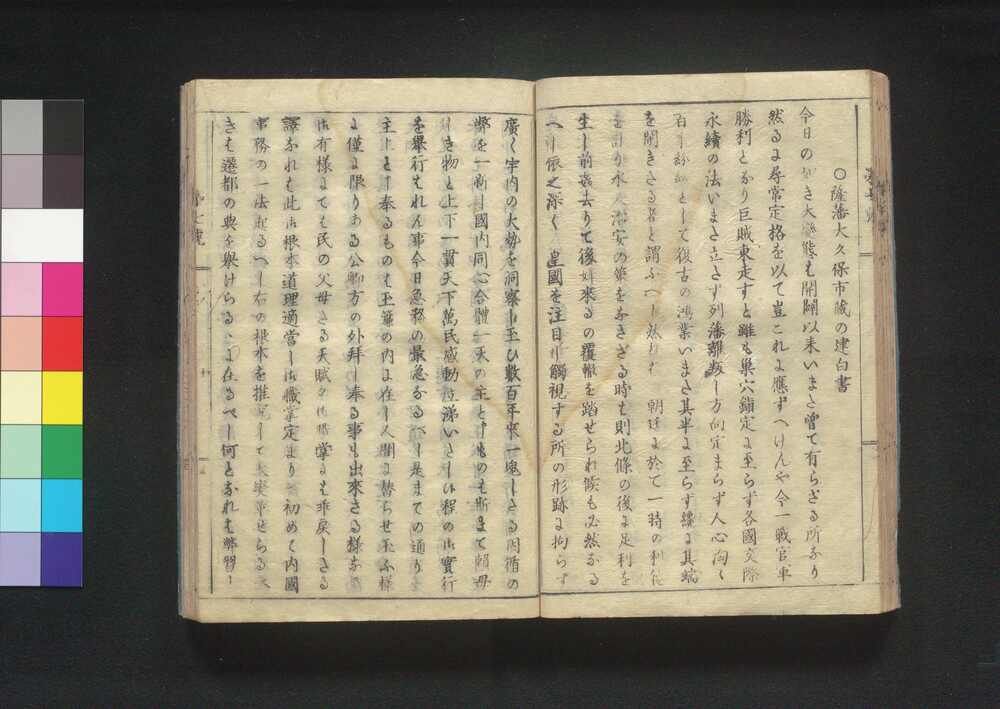 ○薩藩大久保市蔵の建白書
今日の如き大変態も開闢以来いまだ曽て有らざる所なり
然るに尋常定格を以て豈これに應ずへけんや今一戦官軍
勝利となり巨賊東走すと雖も巣穴鎮定に至らず各國交際
永續の法いまだ立ざず列藩離叛し方向定まらず人心洶〻
百事紛紜として復古の鴻業いまだ其半に至らず纔に其端
を開きたる者と謂ふへし然りは 朝廷に於て一時の利
を計り永久治安の策をなさざる時も則北條の後に足利を
生し前姦去りて後姦来るの覆轍を踏せられ候も必然なる
へし依之深く 皇國を注目し觸視する所の形跡に拘らず
廣く宇内の大勢を洞察し玉ひ數百年来一塊したる因循の
弊を一新し國内同心合體一天の主と申ものも斯まて頼母
しき物と上下一貫天下萬民感動涕泣いたし候程の御實行
を舉行せられん事今日急務の最急なるべし是まての通り
主上と申奉るものも玉簾の内に在し人間に替らせ玉ふ様
に僅に限りある公卿方の外拝し奉る事も出來さる様なる
御有様にても民の父母たる天賦の御職掌にも乖戻したる
譯なれも此御根本道理適當し御職掌定まり初めて内國
事務の一法起るへし右の根本を推究して大変革せらるへ
きも遷都の典を舉けらるゝに在るべし何となれも弊習し